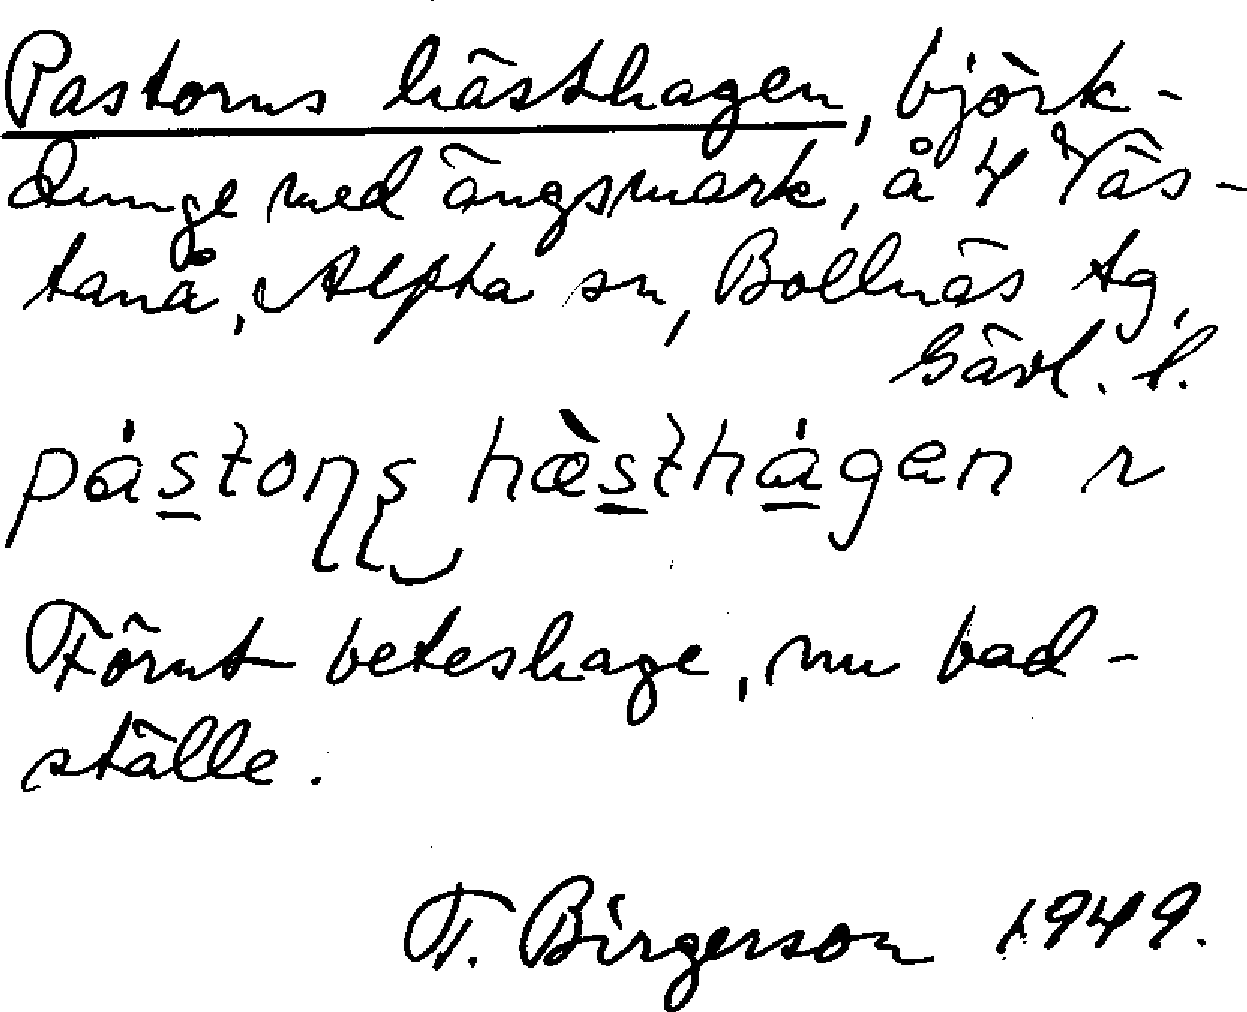 Pastorns hästhagen, björk-
dunge med ängsmark, å 4 Väs-
tanå, Alfta sn, Bollnäs tg,
Gävl. l.
påstoɳʂ hæ̀sthágen r
Förut beteshage, nu bad-
ställe.
F. Birgerson 1949.